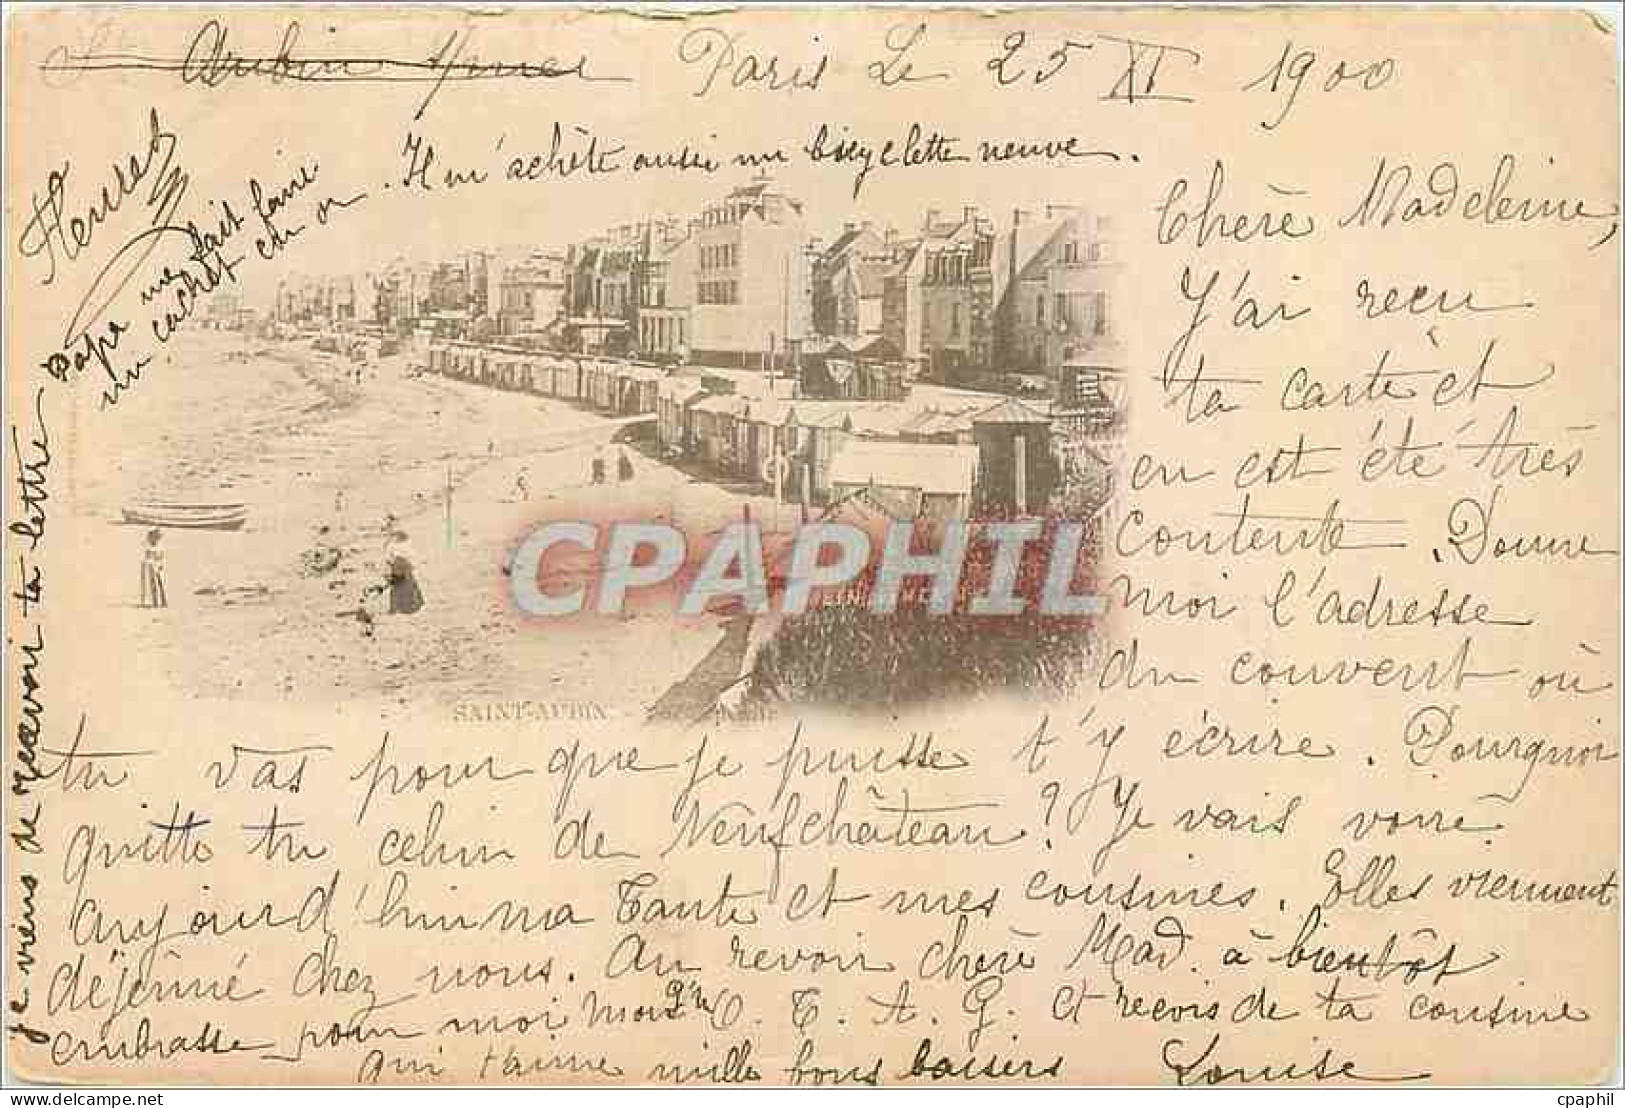 St Aubin s/mer Paris Le 25 XI 1900
Il m'achète aussi un bicyclette neuve.
Papa me fait faire
un cachet en or.
Chère Madeleine,
J'ai reçu
ta carte et
en est été très
contente. Donne
moi l'adresse
du couvent où
tu vas pour que je puisse t'y écrire. Pourquoi
quitte tu celui de Neufchâteau? Je vais voire
aujourd'hui ma Tante et mes cousines. Elles viennent
déjeûné chez nous. Au revoir chère Mad. à bientôt
embrasse pour moi O. T. A. G. et recois de ta cousine
qui t'aime mille bons baisers Louise
je viens de recevoir ta lettre
SAINT-AUBIN
CPAPHIL
cpaphil